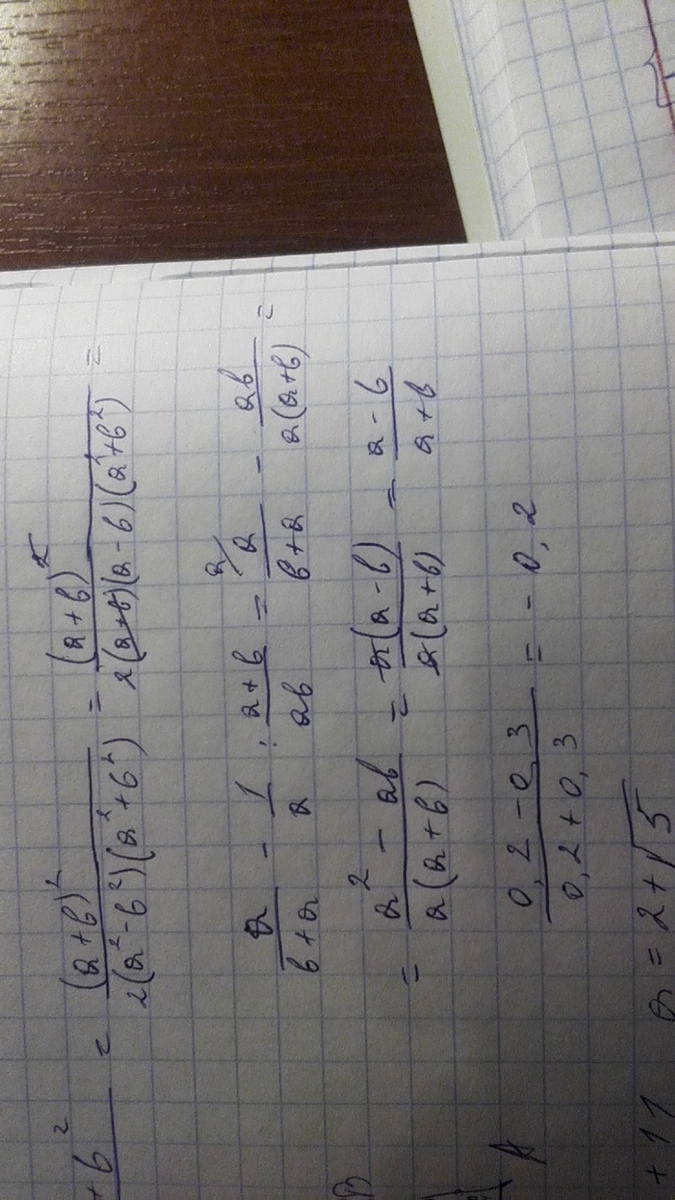 + b² = (a+b)² / 2(a²-b²)(a²+b²) = (a+b)² / 2(a+b)(a-b)(a²+b²) =
a / b+a - 1 / a : a+b / ab = a/ a / b+a - ab / a(a+b) =
= a² - ab / a(a+b) = a(a-b) / a(a+b) = a-b / a+b
0,2-0,3 / 0,2+0,3 = -0,2
+ 11 a = 2+√5